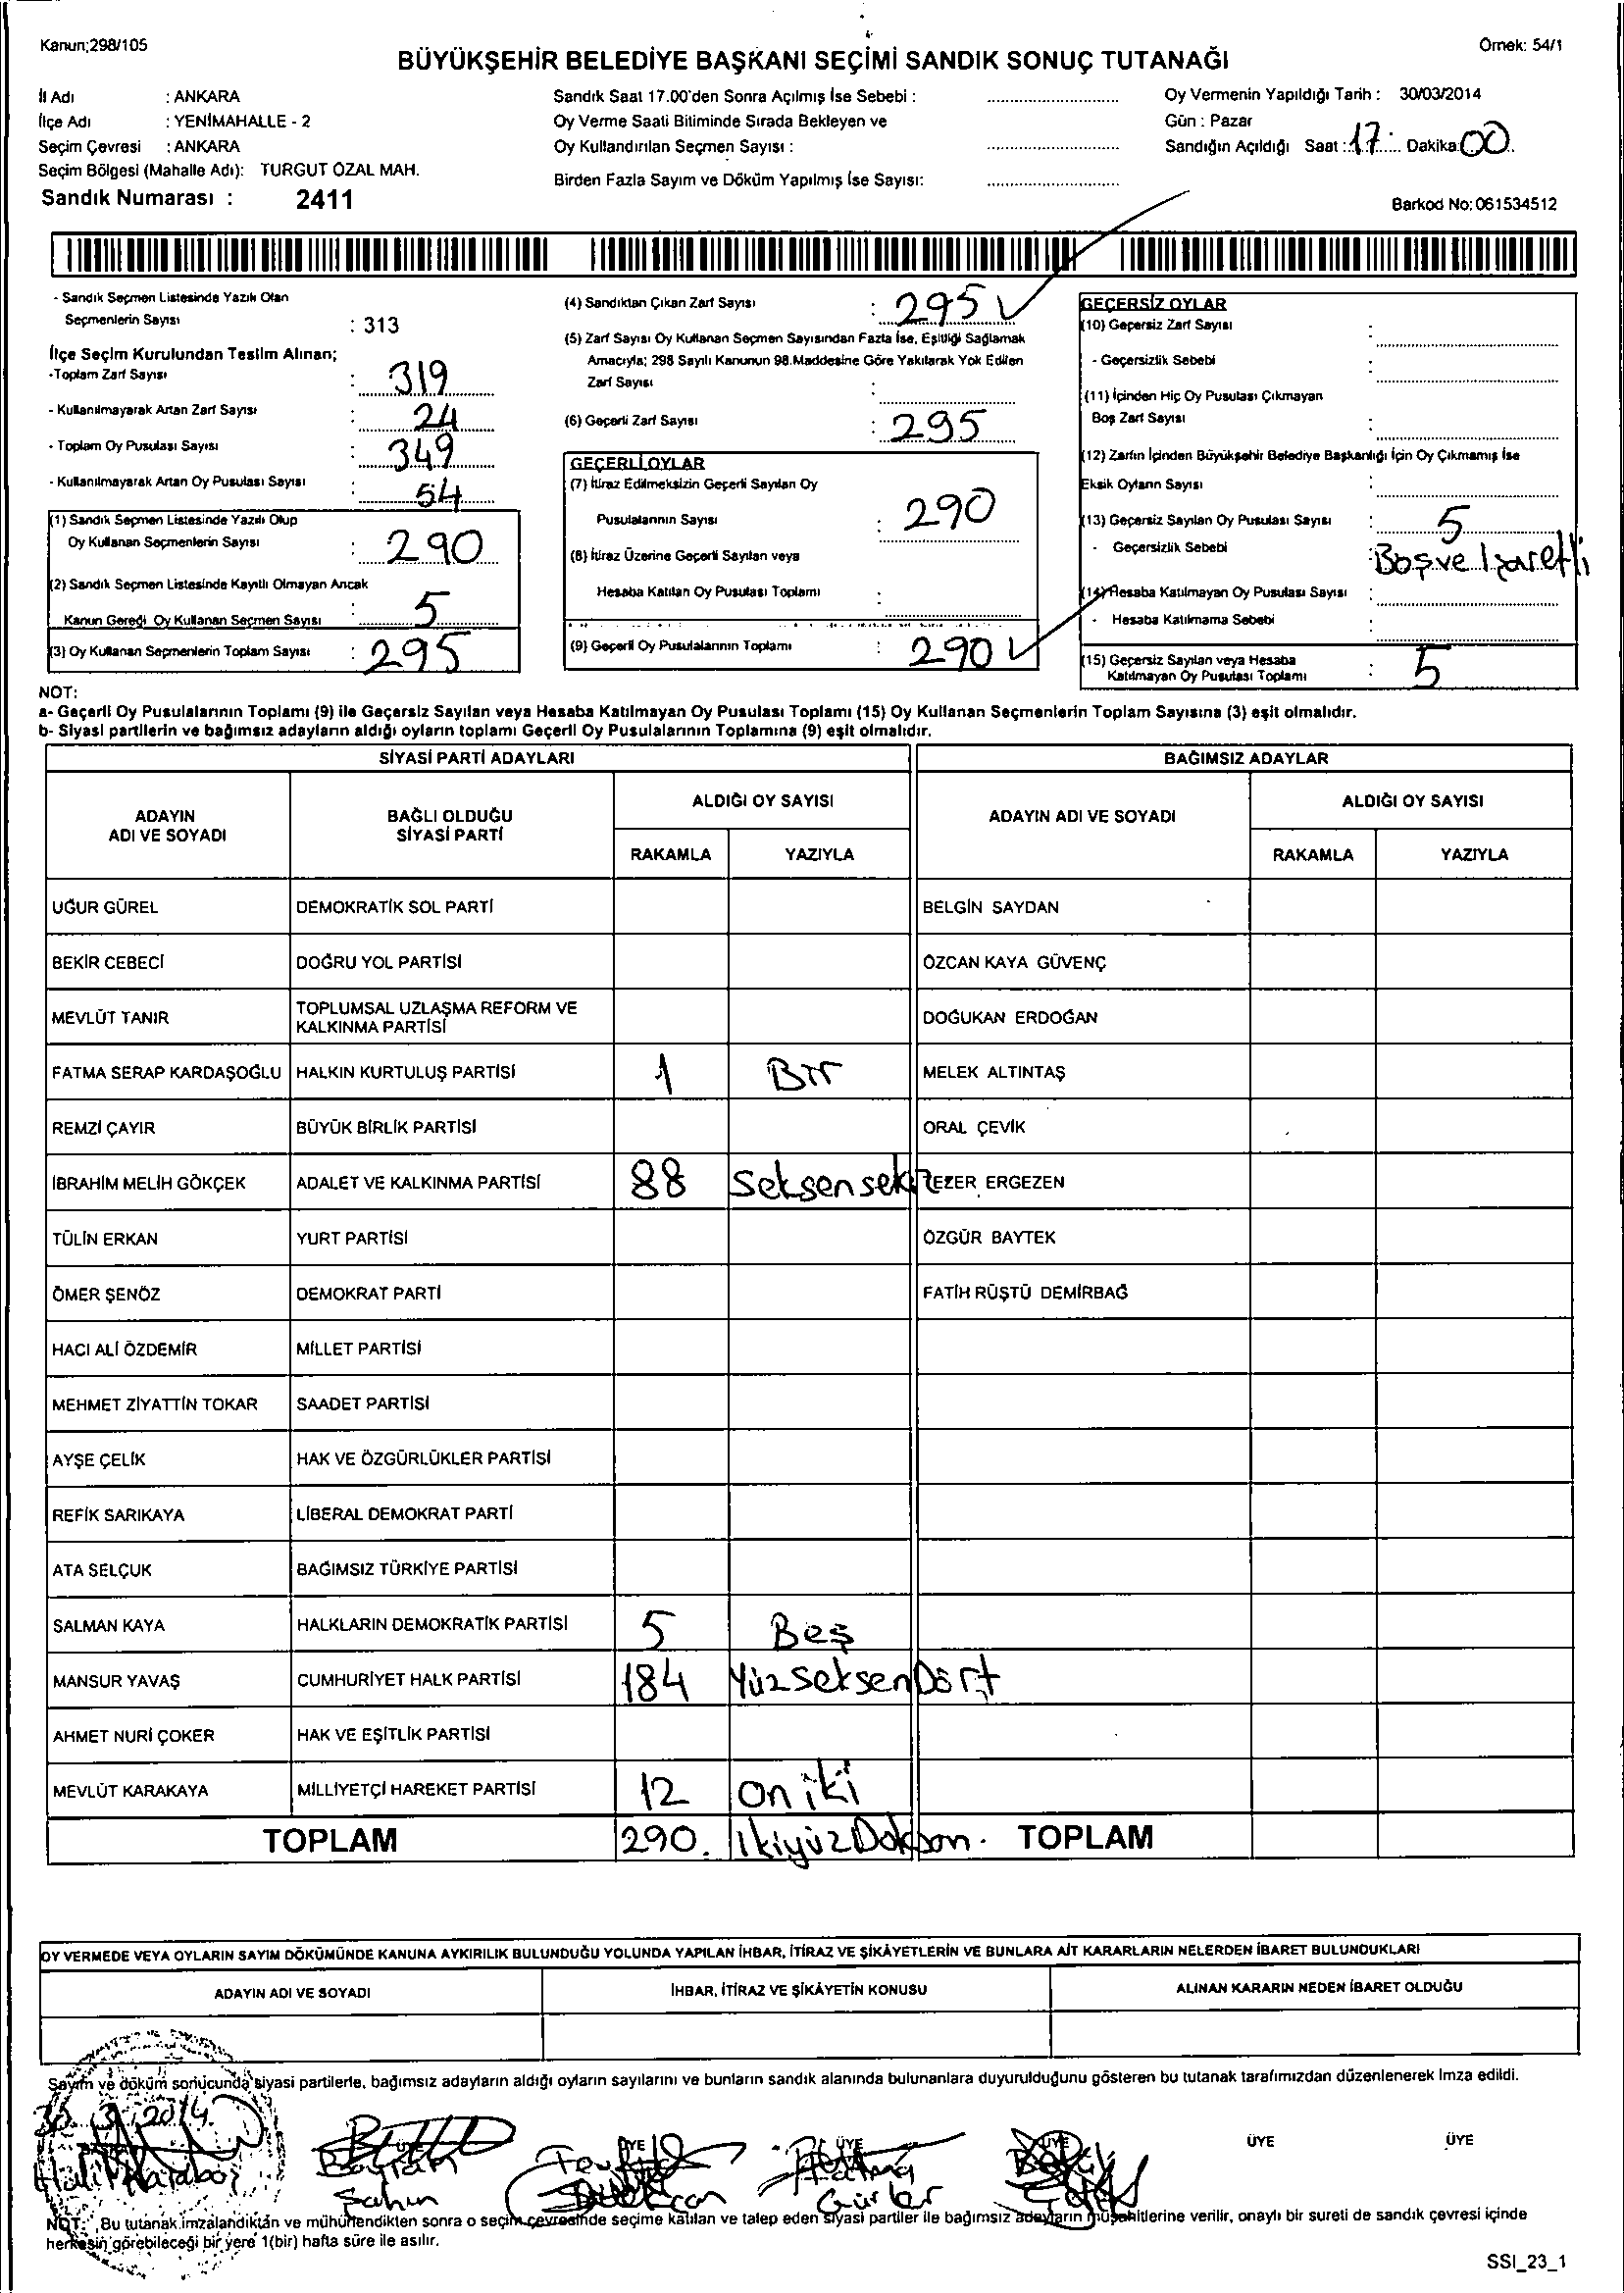 Kanun;298/105
Örnek: 54/1
BÜYÜKŞEHİR BELEDİYE BAŞKANI SEÇİMİ SANDIK SONUÇ TUTANAĞI
İl Adı : ANKARA
İlçe Adı : YENİMAHALLE - 2
Seçim Çevresi : ANKARA
Seçim Bölgesi (Mahalle Adı): TURGUT ÖZAL MAH.
Sandık Numarası : 2411
Sandık Saat 17.00'den Sonra Açılmış İse Sebebi :
Oy Verme Saati Bitiminde Sırada Bekleyen ve
Oy Kullandırılan Seçmen Sayısı :
Birden Fazla Sayım ve Döküm Yapılmış İse Sayısı:
Oy Vermenin Yapıldığı Tarih : 30/03/2014
Gün : Pazar
Sandığın Açıldığı Saat : 17 Dakika 00
Barkod No: 061534512
- Sandık Seçmen Listesinde Yazılı Olan
Seçmenlerin Sayısı : 313
İlçe Seçim Kurulundan Teslim Alınan;
-Toplam Zarf Sayısı : 319
- Kullanılmayarak Artan Zarf Sayısı : 24
- Toplam Oy Pusulası Sayısı : 349
- Kullanılmayarak Artan Oy Pusulası Sayısı : 54
(1) Sandık Seçmen Listesinde Yazılı Olup
Oy Kullanan Seçmenlerin Sayısı : 290
(2) Sandık Seçmen Listesinde Kayıtlı Olmayan Ancak
Kanun Gereği Oy Kullanan Seçmen Sayısı : 5
(3) Oy Kullanan Seçmenlerin Toplam Sayısı : 295
(4) Sandıktan Çıkan Zarf Sayısı : 295
(5) Zarf Sayısı Oy Kullanan Seçmen Sayısından Fazla İse, Eşitliği Sağlamak
Amacıyla; 298 Sayılı Kanunun 98.Maddesine Göre Yakılarak Yok Edilen
Zarf Sayısı :
(6) Geçerli Zarf Sayısı : 295
GEÇERLİ OYLAR
(7) İtiraz Edilmeksizin Geçerli Sayılan Oy
Pusulalarının Sayısı : 290
(8) İtiraz Üzerine Geçerli Sayılan veya
Hesaba Katılan Oy Pusulası Toplamı :
(9) Geçerli Oy Pusulalarının Toplamı : 290
GEÇERSİZ OYLAR
(10) Geçersiz Zarf Sayısı :
- Geçersizlik Sebebi :
(11) İçinden Hiç Oy Pusulası Çıkmayan
Boş Zarf Sayısı :
(12) Zarfın İçinden Büyükşehir Belediye Başkanlığı İçin Oy Çıkmamış İse
Eksik Oyların Sayısı :
(13) Geçersiz Sayılan Oy Pusulası Sayısı : 5
- Geçersizlik Sebebi : Boş ve İşaretli
(14) Hesaba Katılmayan Oy Pusulası Sayısı :
- Hesaba Katılmama Sebebi :
(15) Geçersiz Sayılan veya Hesaba
Katılmayan Oy Pusulası Toplamı : 5
NOT:
a- Geçerli Oy Pusulalarının Toplamı (9) ile Geçersiz Sayılan veya Hesaba Katılmayan Oy Pusulası Toplamı (15) Oy Kullanan Seçmenlerin Toplam Sayısına (3) eşit olmalıdır.
b- Siyasi partilerin ve bağımsız adayların aldığı oyların toplamı Geçerli Oy Pusulalarının Toplamına (9) eşit olmalıdır.
SİYASİ PARTİ ADAYLARI
BAĞIMSIZ ADAYLAR
ADAYIN ADI VE SOYADI
BAĞLI OLDUĞU SİYASİ PARTİ
ALDIĞI OY SAYISI
RAKAMLA YAZIYLA
ADAYIN ADI VE SOYADI
ALDIĞI OY SAYISI
RAKAMLA YAZIYLA
UĞUR GÜREL DEMOKRATİK SOL PARTİ BELGİN SAYDAN
BEKİR CEBECİ DOĞRU YOL PARTİSİ ÖZCAN KAYA GÜVENÇ
MEVLÜT TANIR TOPLUMSAL UZLAŞMA REFORM VE KALKINMA PARTİSİ DOĞUKAN ERDOĞAN
FATMA SERAP KARDAŞOĞLU HALKIN KURTULUŞ PARTİSİ 1 Bir MELEK ALTINTAŞ
REMZİ ÇAYIR BÜYÜK BİRLİK PARTİSİ ORAL ÇEVİK
İBRAHİM MELİH GÖKÇEK ADALET VE KALKINMA PARTİSİ 88 Seksensekiz EZER ERGEZEN
TÜLİN ERKAN YURT PARTİSİ ÖZGÜR BAYTEK
ÖMER ŞENÖZ DEMOKRAT PARTİ FATİH RÜŞTÜ DEMİRBAĞ
HACI ALİ ÖZDEMİR MİLLET PARTİSİ
MEHMET ZİYATTİN TOKAR SAADET PARTİSİ
AYŞE ÇELİK HAK VE ÖZGÜRLÜKLER PARTİSİ
REFİK SARIKAYA LİBERAL DEMOKRAT PARTİ
ATA SELÇUK BAĞIMSIZ TÜRKİYE PARTİSİ
SALMAN KAYA HALKLARIN DEMOKRATİK PARTİSİ 5 Beş
MANSUR YAVAŞ CUMHURİYET HALK PARTİSİ 184 YüzseksenDört
AHMET NURİ ÇOKER HAK VE EŞİTLİK PARTİSİ
MEVLÜT KARAKAYA MİLLİYETÇİ HAREKET PARTİSİ 12 On iki
TOPLAM 290. İkiyüzDoksan. TOPLAM
OY VERMEDE VEYA OYLARIN SAYIM DÖKÜMÜNDE KANUNA AYKIRILIK BULUNDUĞU YOLUNDA YAPILAN İHBAR, İTİRAZ VE ŞİKÂYETLERİN VE BUNLARA AİT KARARLARIN NELERDEN İBARET BULUNDUKLARI
ADAYIN ADI VE SOYADI İHBAR, İTİRAZ VE ŞİKÂYETİN KONUSU ALINAN KARARIN NEDEN İBARET OLDUĞU
Sayım ve döküm sonucunda siyasi partilerle, bağımsız adayların aldığı oyların sayılarını ve bunların sandık alanında bulunanlara duyurulduğunu gösteren bu tutanak tarafımızdan düzenlenerek imza edildi.
30 3 2014
ÜYE ÜYE ÜYE ÜYE ÜYE ÜYE
Bayram
Şahin
Fatma
Gürler
NOT: Bu tutanak imzalandıktan ve mühürlendikten sonra o seçim çevresinde seçime katılan ve talep eden siyasi partiler ile bağımsız adayların müşahitlerine verilir, onaylı bir sureti de sandık çevresi içinde
herkesin görebileceği bir yere 1(bir) hafta süre ile asılır.
SSI_23_1